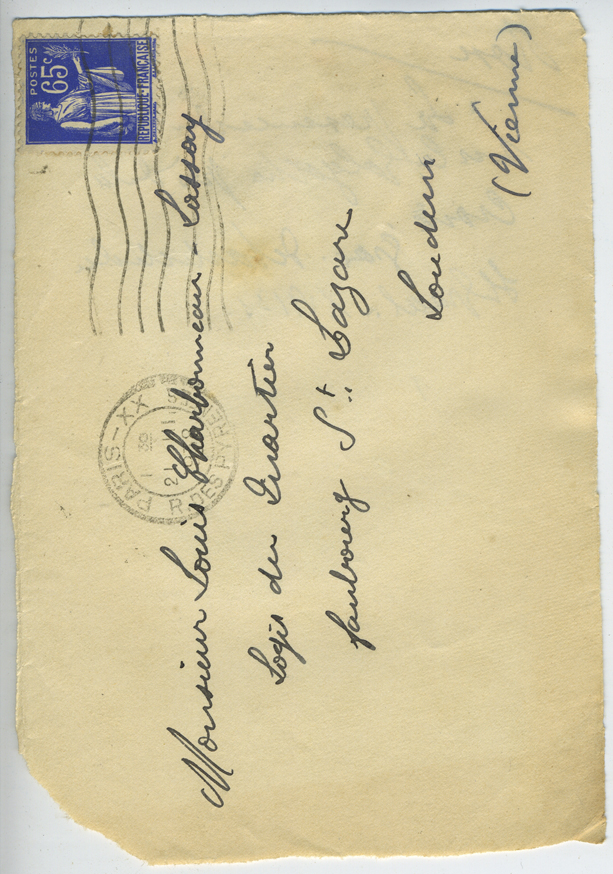 POSTES
65c
REPUBLIQUE FRANÇAISE
PARIS-XX
R. DES PYRE
Monsieur Louis Charbonneau-Lassay
Logis du Quartier
faubourg St. Lazare
Loudun
(Vienne)